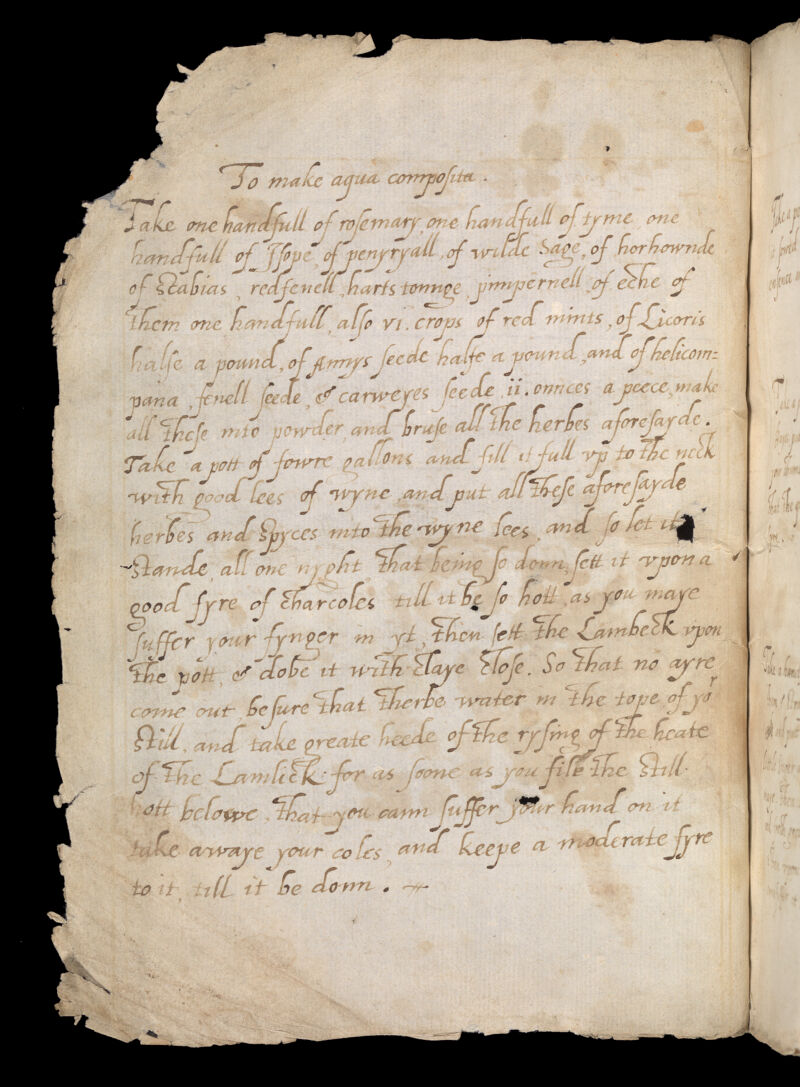 To make aqua composita.
Take one handfull of rosemary, one handfull of tyme, one
handfull of Isope, of penyryall, of wilde Sage, of horhownde
of Scabias, redfenell, harts tounge, pimpernell, of eche of
them one handfull, also vi. crops of red mints, of Licoris
halfe a pound, of Annys seede halfe a pound, and of helicom=
pana, fenell seede, & carweyes seede, ii. ounces a peece, make
all these into powder, and bruse all the herbes aforesayde.
Take a pott of fowre gallons and fill it full vp to the neck
with good lees of wyne, and put all these aforesayde
herbes and Spyces into the wyne lees, and so let it
Stande, all one nyght that being so donn, sett it vpon a
good fyre of charcoles till it be so hott, as you maye
suffer your fynger in yt, then sett the Lambeck vpon
the pott, & dobe it with claye close. So that no ayre
come out, be sure that therbe water in the tope of yor
Still, and take greate heede of the rysing of the heate
of the Lamlick. for as soone as you file the Still.
hott belowe, that you cann suffer your hand on it
take awaye your coles, and keepe a moderate fyre
to it, till it be donn.